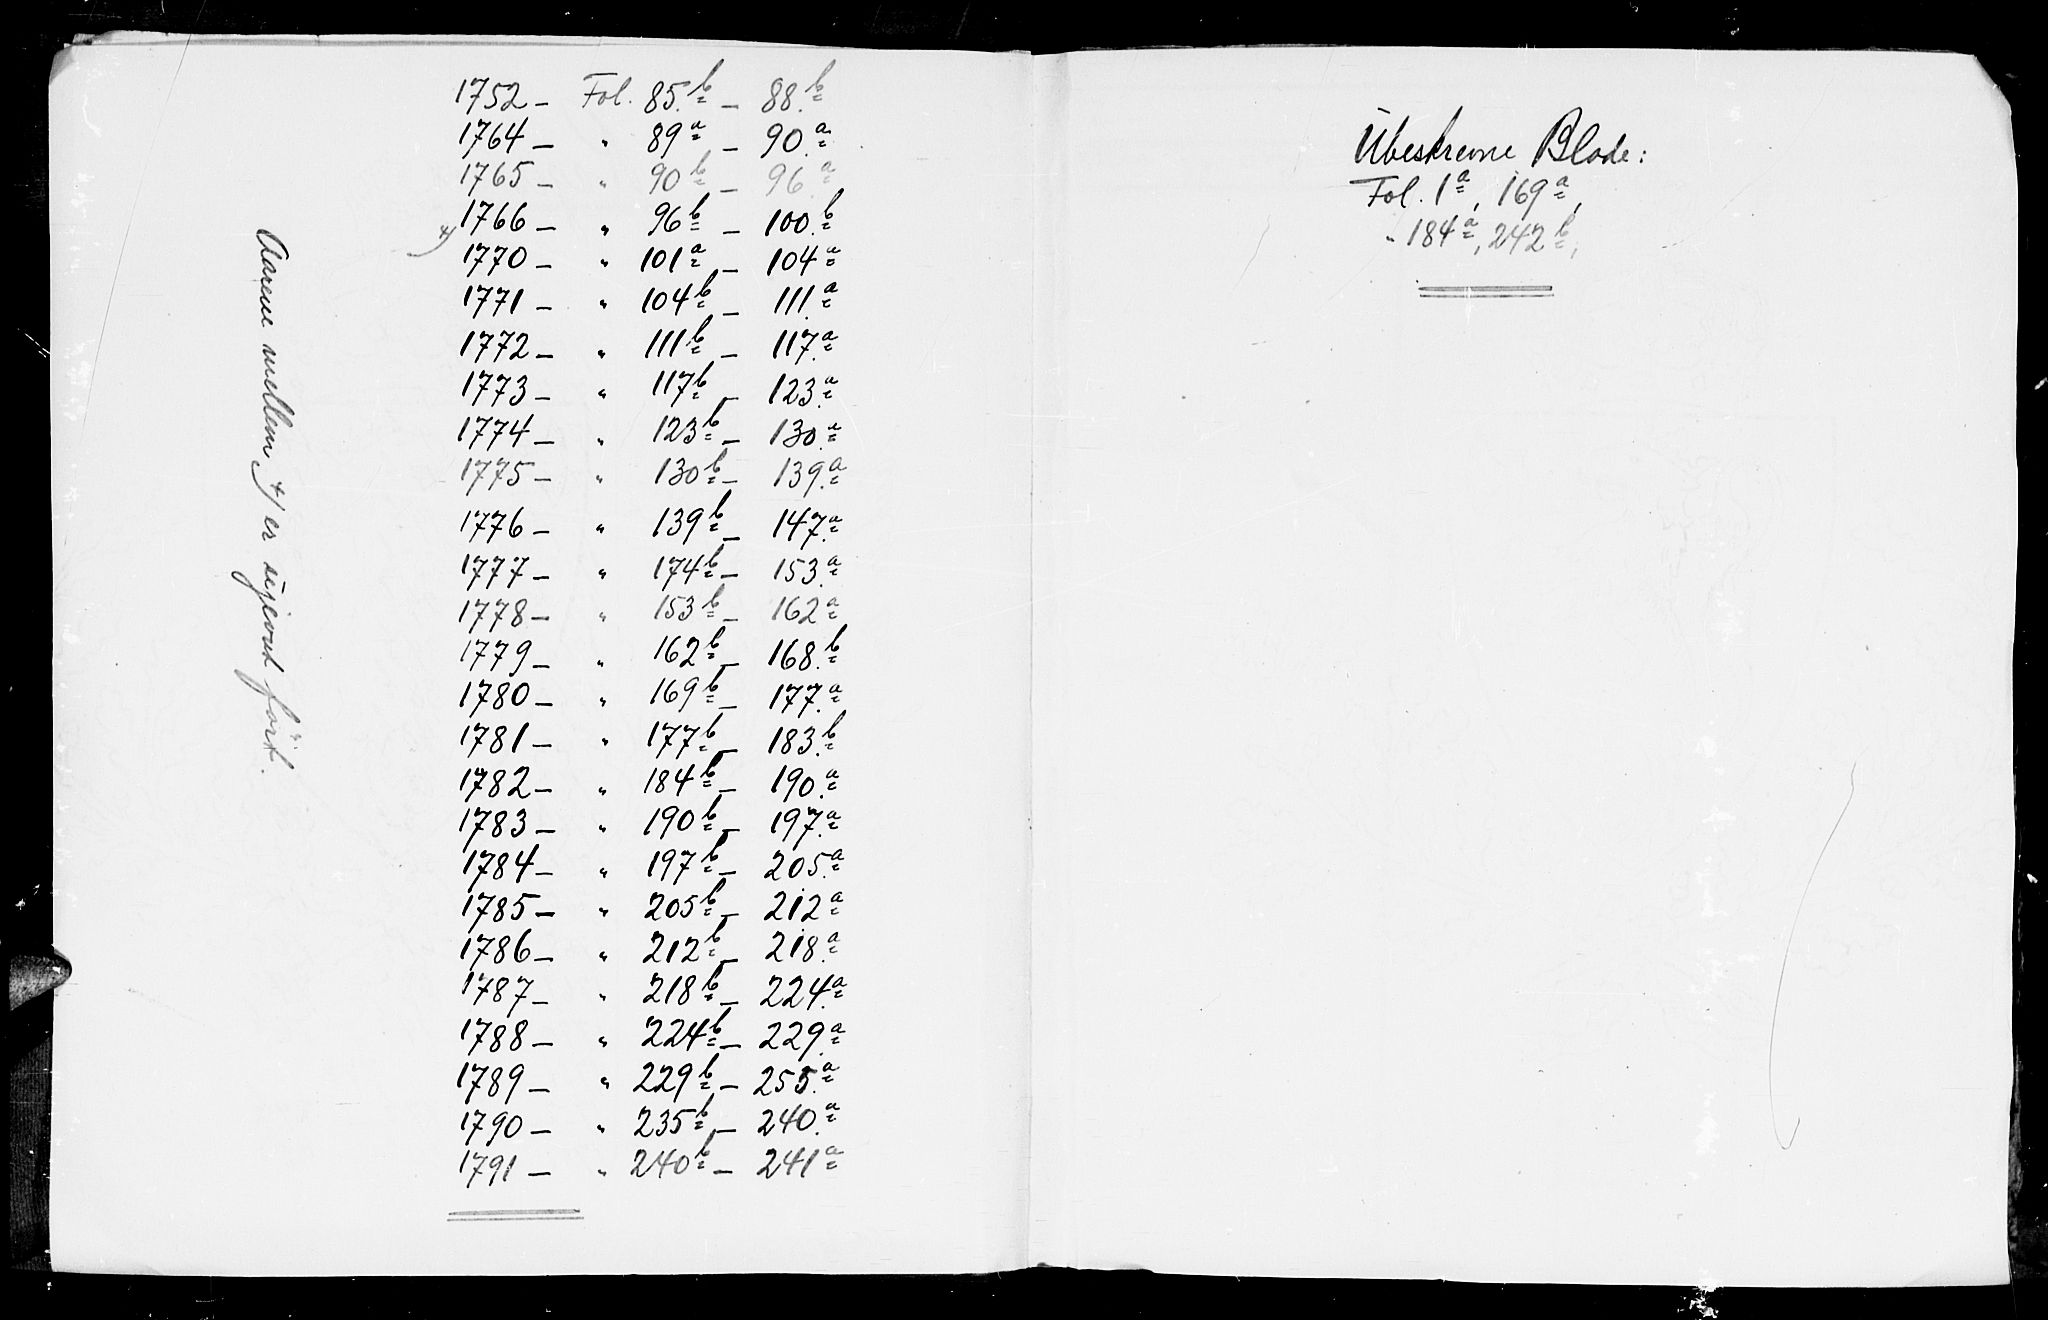 1752 – Fol. 85.b – 88.b
1764 – " 89a – 90.a
1765 – " 90b – 96.a
1766 – " 96b – 100.b
+) 1770 – " 101a – 104a
1771 – " 104b – 111.a
1772 – " 111b – 117.a
1773 – " 117b – 123.a
1774 – " 123b – 130.a
1775 – " 130b – 139.a
1776 – " 139b – 147.a
1777 – " 174b – 153.a
1778 – " 153b – 162a
1779 – " 162b – 168.b
1780 – " 169b – 177.a
1781 – " 177b – 183.b
1782 – " 184b – 190.a
1783 – " 190b – 197.a
1784 – " 197b – 205.a
1785 – " 205b – 212a
1786 – " 212b – 218.a
1787 – " 218b – 224.a
1788 – " 224b – 229.a
1789 – " 229b – 255.a
1790 – " 235b – 240.a
1791 – " 240b – 241a
Aarene mellem +) er ujevnt ført.
Ubeskrevne Blade:
Fol. 1a, 169a,
" 184a, 242b,